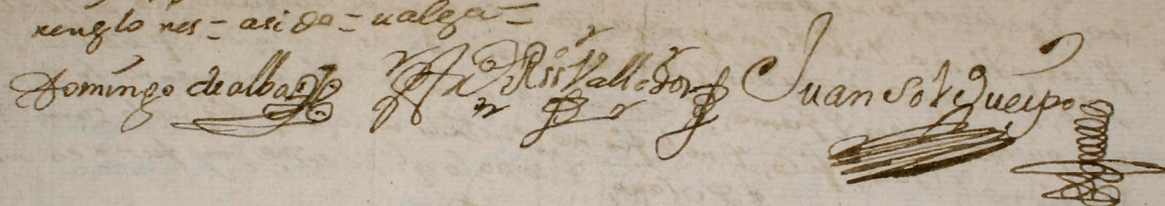 renglones = asido = valga =
Domingo de alba Rss Valledor Juan Queipo